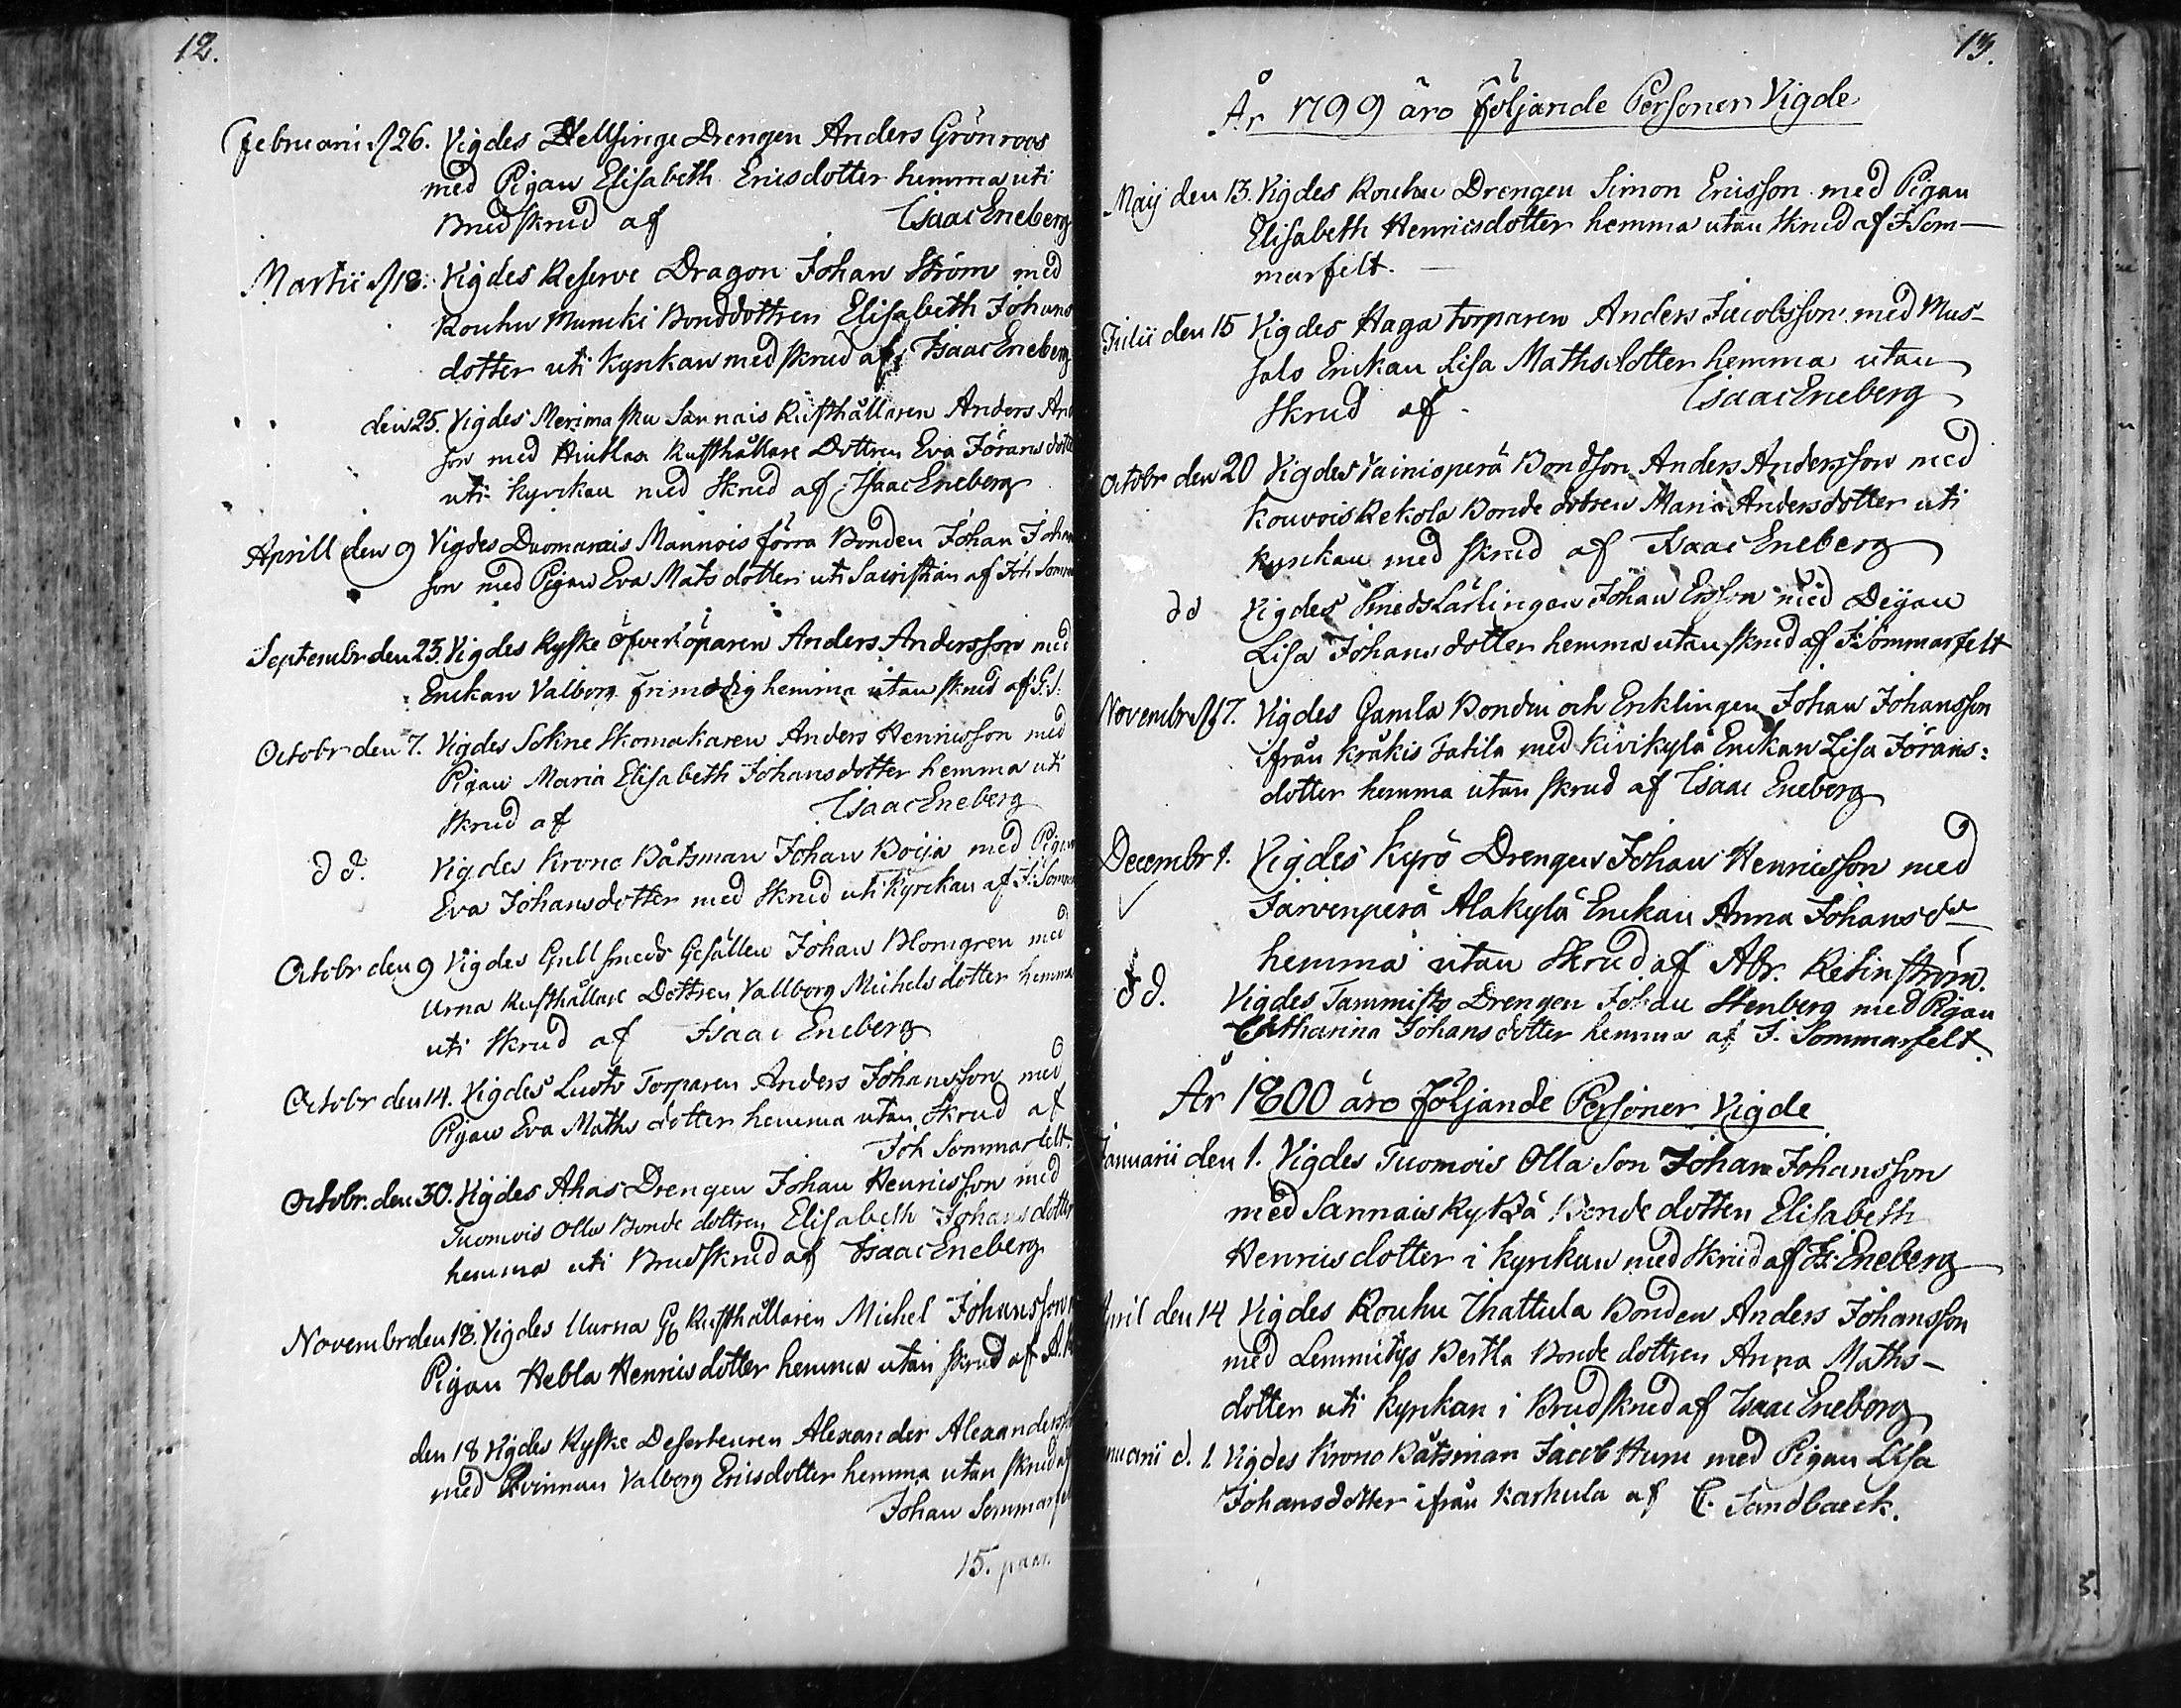 12.
Februarii d 26. Vigdes Hellsinge Drengen Anders Grönroos
med Pigan Elisabeth Ericsdotter hemma uti
Brudskrud af Isaac Eneberg
Martii d 18. Vigdes Reserve Dragon Johan Ström med
Rouhu Muncki Bonddottren Elisabeth Johans
dotter uti Kyrckan med skrud af Isaac Eneberg
den 25. Vigdes Merimasku Sannais Rusthållaren Anders An
son med Rusthållare Dottren Eva Jörans dotte
uti kyrckan med Skrud af Isaac Eneberg
Aprill den 9 Vigdes Duomarais Mannois förra Bonden Johan Joha
son med Pigan Eva Mats dotter uti Sacristian af Joh Somm
Septembr den 23. Vigdes Ryske öfverlöparen Anders Andersson med
Enckan Valborg Frimodig hemma utan skrud af
Octobr den 7. Vigdes Sokne Skomakaren Anders Henricsson med
Pigan Maria Elisabeth Johansdotter hemma uti
Skrud af Isaac Eneberg
d d. Vigdes Krono Båtsman Johan Boija med Pigan
Eva Johansdotter med Skrud uti Kyrckan af J. Somm
Octobr den 9 Vigdes Gullsmeds Gesällen Johan Blomgren med
Urna Rusthållare Dottren Vallborg Michels dotter hemma
uti Skrud af Isaac Eneberg
Octobr den 14. Vigdes Luoto Torparen Anders Johansson med
Pigan Eva Maths dotter hemma utan Skrud af
Joh Sommarfelt
Octobr. den 30. Vigdes Ahas Drengen Johan Henricsson med
Tuomois Olla Bonde dottren Elisabeth Johansdotter
hemma uti Brudskrud af Isaac Eneberg
Novembr den 18. Vigdes Uurna Rusthållaren Michel Johansson
Pigan Hebla Henricsdotter hemma utan skrud af A.
den 18 Vigdes Ryske Deserteuren Alexander Alexanders
med Qvinnan Valborg Ericsdotter hemma utan skrud af
Johan Sommarfel
15. paar.
13.
År 1799 äro följande Personer Vigde
Maij den 13. Vigdes Rouhu Drengen Simon Ericsson med Pigan
Elisabeth Henricsdotter hemma utan Skrud af J Som-
marfelt.
Julii den 15 Vigdes Haga torparen Anders Jacobsson med Mus-
salo Enckan Lisa Mathsdotter hemma utan
Skrud af Isaac Eneberg
Octobr den 20 Vigdes Vainioperä Bondson Anders Andersson med
Kouvois Rekola Bonde dotren Maria Andersdotter uti
kyrckan med skrud af Isaac Eneberg
dd Vigdes Smeds Lärlingen Johan Ersson med Pigan
Lisa Johans dotter hemma utan skrud af J. Sommarfelt
Novembr d 17. Vigdes Gamla Bonden och Encklingen Johan Johansson
ifrån Kråkis Tatila med Kivikylä Enckan Lisa Jörans:
dotter hemma utan skrud af Isaac Eneberg
Decembr 1. Vigdes Kyrö Drengen Johan Henricsson med
Järvenperä Alakylä Enckan Anna Johans dr
hemma utan Skrud af Abr. Relinström.
d d. Vigdes Tammisto Drengen Johan Stenberg med Pigan
Catharina Johans dotter hemma af J. Sommarfelt
År 1800 äro följande Personer Vigde
Januarii den 1. Vigdes Tuomois Olla Son Johan Johansson
med Sannais Kylkä Bonde dotten Elisabeth
Henricsdotter i kyrckan med Skrud af Is. Eneberg
April den 14 Vigdes Rouhu Uhattula Bonden Anders Johansson
med Lemmitys Bertla Bonde dottren Anna Maths-
dotter uti kyrckan i Brudskrud af Isaac Eneberg
nuarii d. 1. Vigdes Krono Båtsman Jacob Huru med Pigan Lisa
Johansdotter ifrån Karhula af C. Sandbaeck.
3.